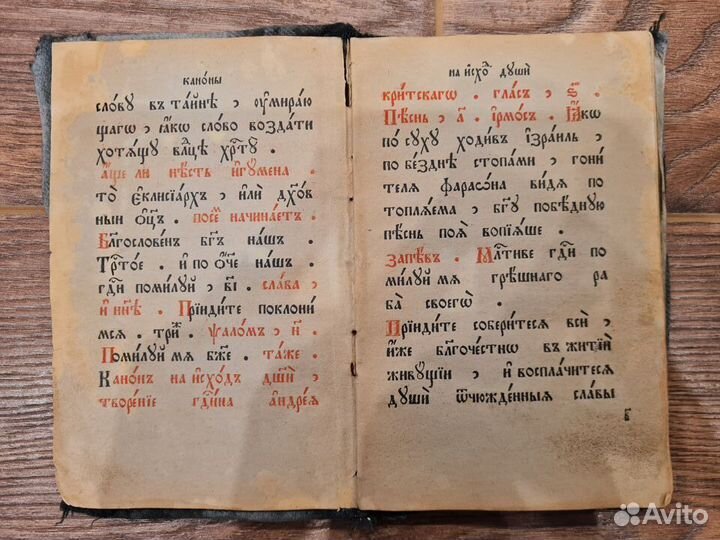 канѡ́ны
сло́вꙋ въ та́йнѣ , ᲂу҆мира́ю
щагѡ , ꙗ҆́кѡ сло́во возда́ти
хотѧ́щꙋ влⷣцѣ хрⷭ҇тꙋ̀ .
а҆́ще ли нѣ́сть и҆гꙋ́мена
то̀ є҆клисїа́рхъ , и҆лѝ дх҃о́в
ныи ѻ҆ц҃ъ . посе́мъ начина́етъ .
Бл҃гослове́нъ бг҃ъ на́шъ .
Трⷭ҇то́е . и҆ по ѻ҆́ч҃е на́шъ .
гдⷭ҇и поми́лꙋй , в҃і . сла́ва ,
и҆ ны́нѣ . Прїиди́те поклони́
мсѧ . три́ж . ѱало́мъ , н҃ .
Поми́лꙋй мѧ бж҃е . та́же .
Кано́нъ на и҆схо́дъ дш҃и́ ,
творе́нїе гдⷭ҇и́на а҆ндре́ѧ
на и҆схо́дъ дꙋшѝ
кри́тскагѡ . гла́съ , ѕ҃ .
Пѣ́снь , а҃ . і҆рмо́съ . Ꙗ҆́кѡ
по сꙋ́хꙋ ходи́въ і҆зра́иль ,
по бе́зднѣ стопа́ми , гони́
телѧ фараѡ́на ви́дѧ по
топлѧ́ема , бг҃ꙋ побѣ́днꙋю
пѣ́снь поѧ̀ вопїѧ́ше .
запѣ́въ . Млⷭ҇тиве гдⷭ҇и по
ми́лꙋй мѧ грѣ́шнаго ра
ба̀ своего̀ .
Прїиди́те собери́тесѧ всѝ ,
и҆̀же бл҃гоче́стнѡ въ житїѝ
живꙋ́щїи , и҆ воспла́читесѧ
дꙋшѝ ѿчюжде́нныѧ сла́вы
в
Avito